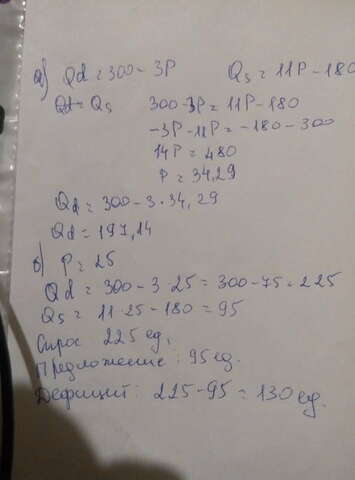 а) Qd = 300 - 3P Qs = 11P - 180
Qd = Qs 300 - 3P = 11P - 180
-3P - 11P = -180 - 300
14P = 480
P = 34,29
Qd = 300 - 3 · 34,29
Qd = 197,14
б) P = 25
Qd = 300 - 3 · 25 = 300 - 75 = 225
Qs = 11 · 25 - 180 = 95
Спрос 225 ед,
Предложение: 95 ед.
Дефицит: 225 - 95 = 130 ед.